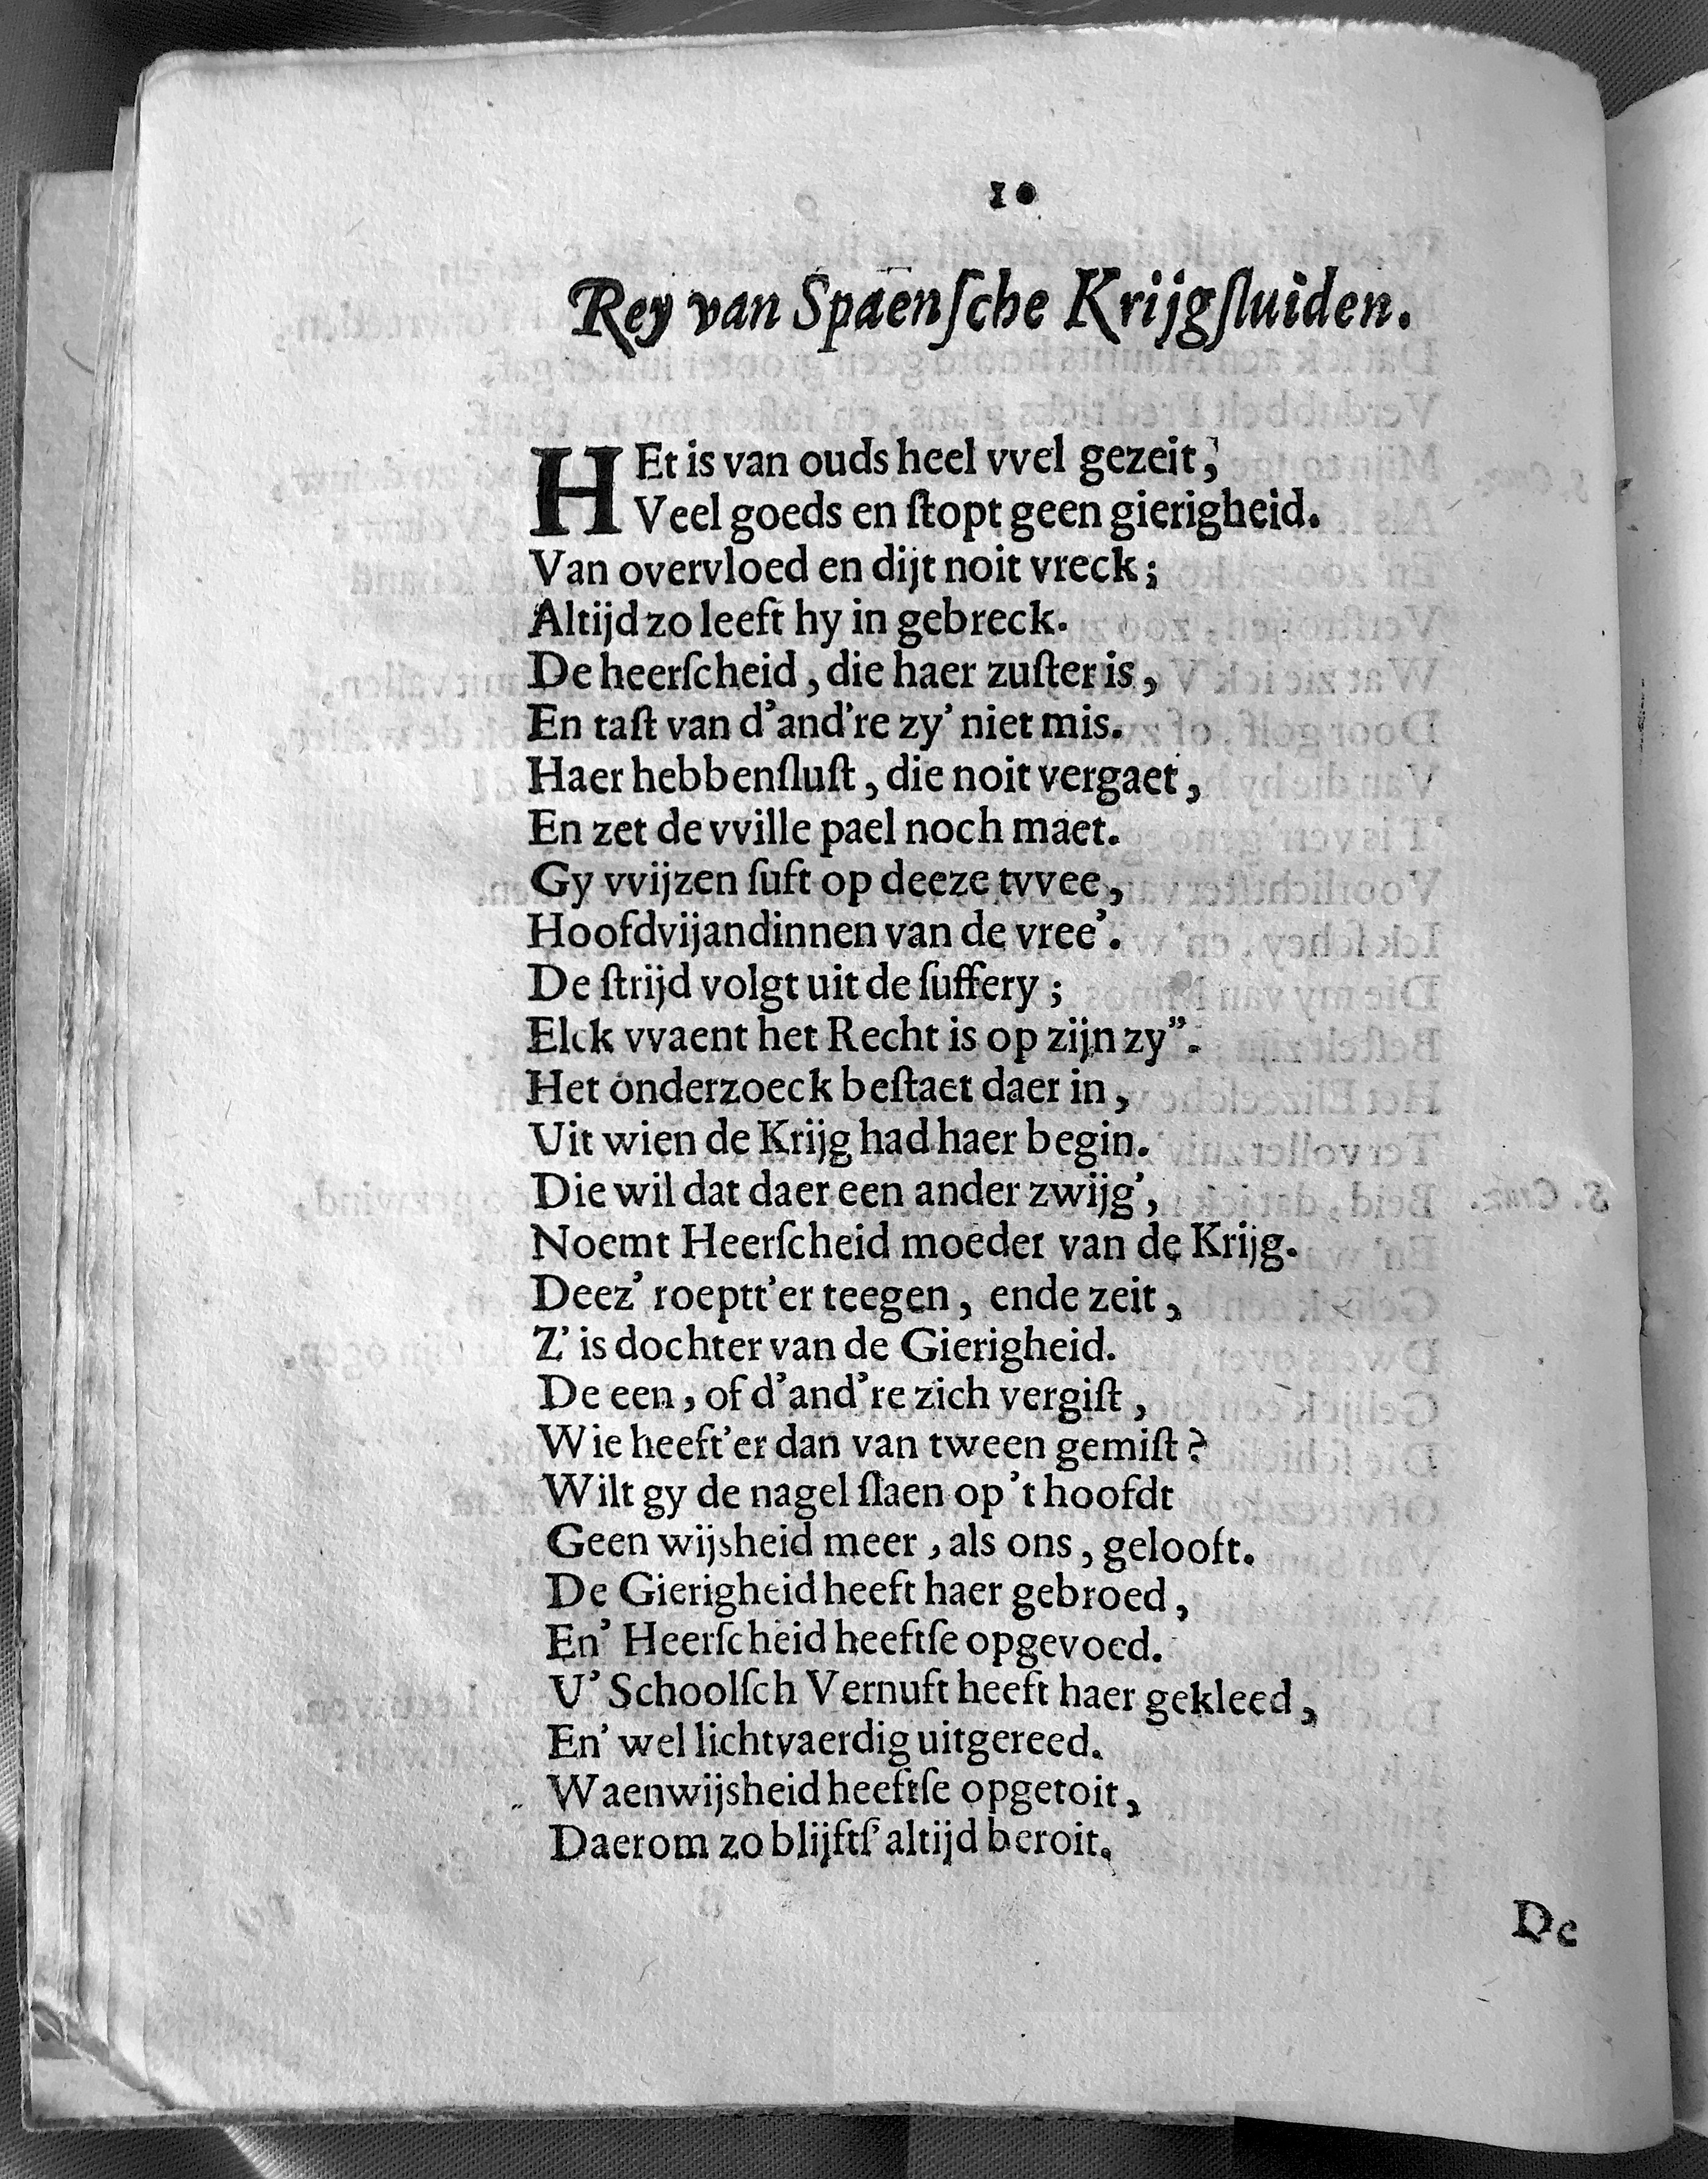 10
Rey van Spaenſche Krijgſluiden.
HEt is van ouds heel vvel gezeit,
Veel goeds en ſtopt geen gierigheid.
Van overvloed en dijt noit vreck;
Altijd zo leeft hy in gebreck.
De heerſcheid, die haer zuſter is,
En taſt van d'and're zy' niet mis.
Haer hebbenſluſt, die noit vergaet,
En zet de vville pael noch maet.
Gy vvijzen ſuft op deeze tvvee,
Hoofdvijandinnen van de vree'.
De ſtrijd volgt uit de ſuffery;
Elck vvaent het Recht is op zijn zy".
Het onderzoeck beſtaet daer in,
Uit wien de Krijg had haer begin.
Die wil dat daer een ander zwijg',
Noemt Heerſcheid moeder van de Krijg.
Deez' roeptt'er teegen, ende zeit,
Z' is dochter van de Gierigheid.
De een, of d'and're zich vergiſt,
Wie heeft'er dan van tween gemiſt?
Wilt gy de nagel ſlaen op 't hoofdt
Geen wijsheid meer, als ons, gelooft.
De Gierigheid heeft haer gebroed,
En' Heerſcheid heeftſe opgevoed.
U' Schoolſch Vernuft heeft haer gekleed,
En' wel lichtvaerdig uitgereed.
Waenwijsheid heeftſe opgetoit,
Daerom zo blijftſ' altijd beroit.
De